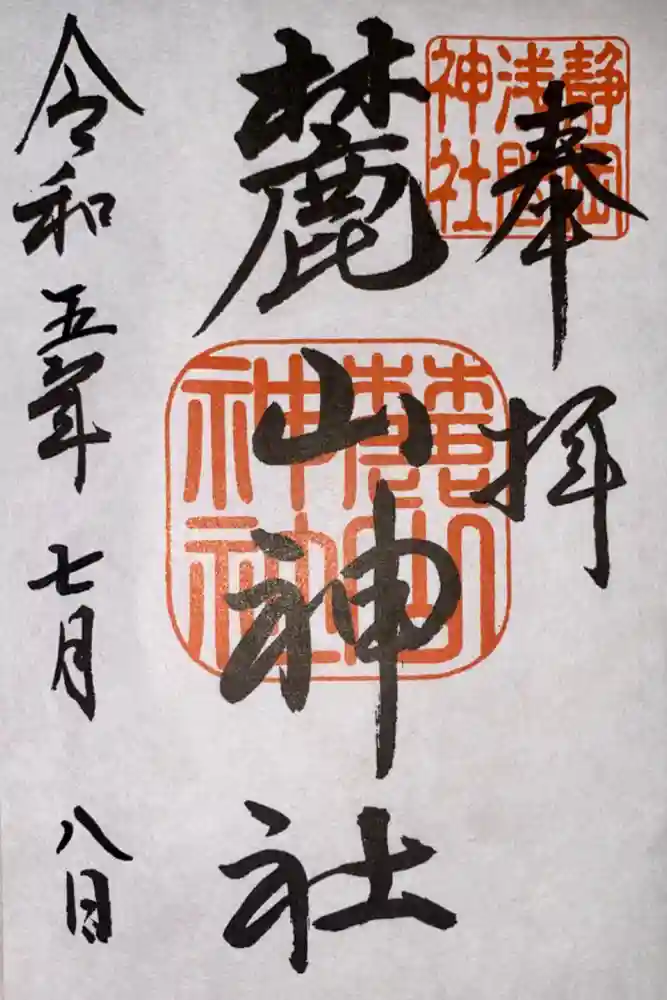 奉拝
静岡
浅間
神社
麓山神社
麓山
神社
令和五年七月八日